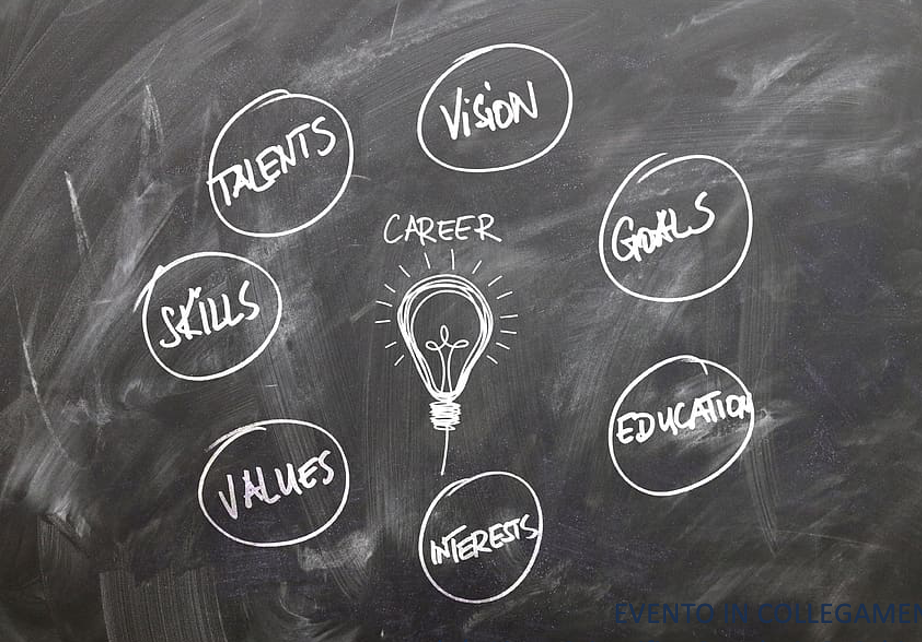 VISION
TALENTS
GOALS
CAREER
SKILLS
EDUCATION
VALUES
INTERESTS
EVENTO IN COLLEGAMEN